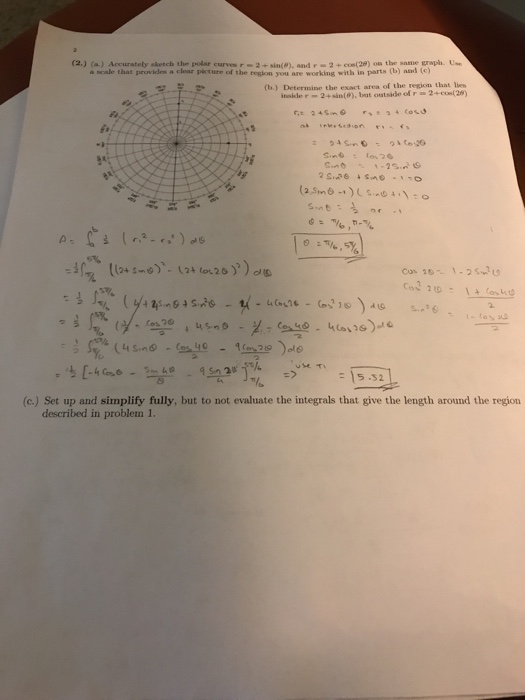 2
(2.) (a.) Accurately sketch the polar curves r = 2 + sin(θ), and r = 2 + cos(2θ) on the same graph. Use
a scale that provides a clear picture of the region you are working with in parts (b) and (c)
(b.) Determine the exact area of the region that lies
inside r = 2+sin(θ), but outside of r = 2+cos(2θ)
r₁ = 2+Sinθ r₂ = 2 + Cos2θ
at intersection r₁ = r₂
= 2+Sinθ = 2+Cos2θ
Sinθ = Cos2θ
Sinθ = 1-2Sin²θ
2Sin²θ + Sinθ - 1 = 0
(2Sinθ -1)(Sinθ+1) = 0
Sinθ = 1/2 or -1
θ = π/6, π-π/6
θ = π/6, 5π/6
A = ∫ 1/2 (r₁² - r₂²) dθ
= 1/2 ∫ ((2+Sinθ)² - (2+Cos2θ)²) dθ
Cos 2θ = 1-2Sin²θ
Cos² 2θ = 1+Cos4θ / 2
Sin²θ = 1-Cos2θ / 2
= 1/2 ∫ (4+4Sinθ+Sin²θ - 4 - 4Cos2θ - Cos²2θ) dθ
= 1/2 ∫ (1/2 - Cos2θ/2 + 4Sinθ - 1/2 - Cos4θ/2 - 4Cos2θ) dθ
= 1/2 ∫ (4Sinθ - Cos4θ/2 - 9Cos2θ/2) dθ
= 1/2 [-4Cosθ - Sin4θ/8 - 9Sin2θ/4] 5π/6 π/6 => use = 5.52
(c.) Set up and simplify fully, but to not evaluate the integrals that give the length around the region
described in problem 1.